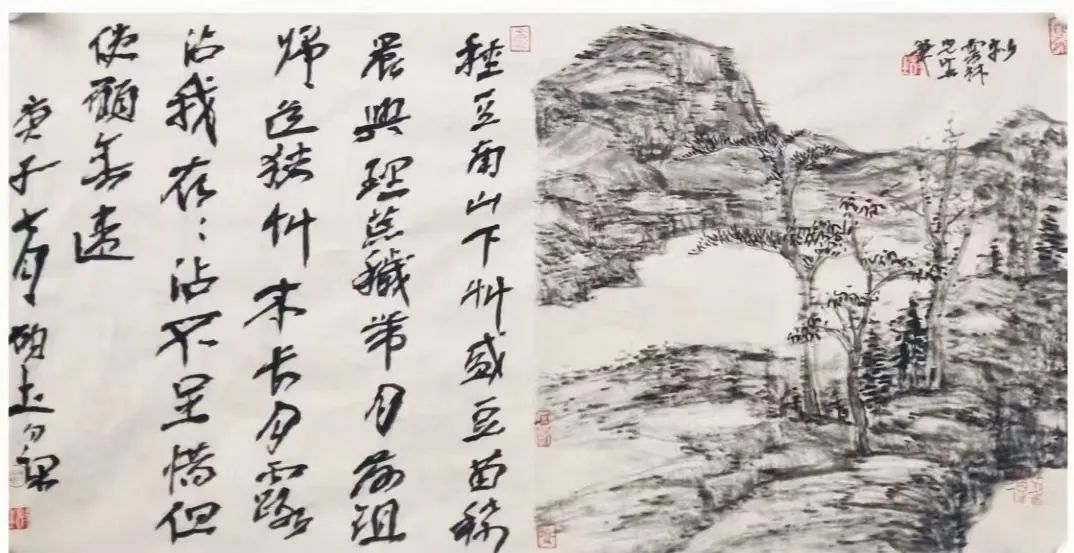 雲林
筆
種豆南山下艸盛豆苗稀
晨興理荒穢帶月荷鉏
歸道狹艸木長夕露
沾我衣〻沾不足惜但
使願無違
庚子七月